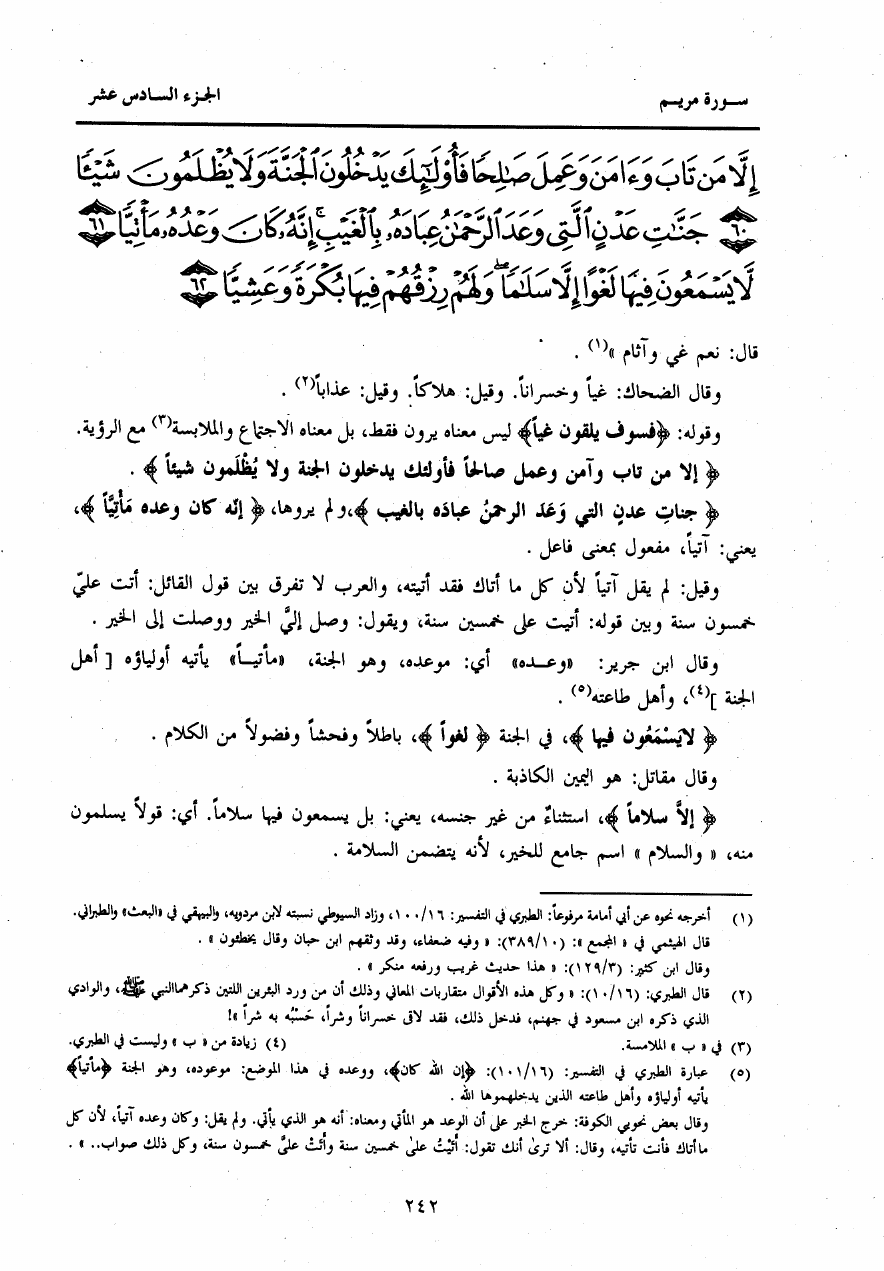 سورة مريم
الجزء السادس عشر
إِلَّا مَن تَابَ وَءَامَنَ وَعَمِلَ صَٰلِحًا فَأُو۟لَٰٓئِكَ يَدْخُلُونَ ٱلْجَنَّةَ وَلَا يُظْلَمُونَ شَيْـًٔا
٦٠ جَنَّٰتِ عَدْنٍ ٱلَّتِى وَعَدَ ٱلرَّحْمَٰنُ عِبَادَهُۥ بِٱلْغَيْبِ ۚ إِنَّهُۥ كَانَ وَعْدُهُۥ مَأْتِيًّا ٦١
لَّا يَسْمَعُونَ فِيهَا لَغْوًا إِلَّا سَلَٰمًا ۖ وَلَهُمْ رِزْقُهُمْ فِيهَا بُكْرَةً وَعَشِيًّا ٦٢
قال: نعم غي وآثام »(١) .
وقال الضحاك: غياً وخسراناً. وقيل: هلاكاً. وقيل: عذاباً(٢) .
وقوله: ﴿فسوف يلقون غياً﴾ ليس معناه يرون فقط، بل معناه الاجتماع والملابسة(٣) مع الرؤية.
﴿ إلا من تاب وآمن وعمل صالحاً فأولئك يدخلون الجنة ولا يُظْلَمون شيئاً ﴾ .
﴿ جناتِ عدنٍ التي وَعَدَ الرحمنُ عبادَه بالغيب ﴾،ولم يروها، ﴿ إنّه كان وعده مَأْتِيَّاً ﴾،
يعني: آتياً، مفعول بمعنى فاعل .
وقيل: لم يقل آتياً لأن كل ما أتاك فقد أتيته، والعرب لا تفرق بين قول القائل: أتت عليّ
خمسون سنة وبين قوله: أتيت على خمسين سنة، ويقول: وصل إليَّ الخير ووصلت إلى الخير .
وقال ابن جرير: «وعـده» أي: موعده، وهو الجنة، «مأتيـاً» يأتيه أولياؤه [ أهل
الجنة ](٤)، وأهل طاعته(٥) .
﴿ لايَسْمَعُون فيها ﴾، في الجنة ﴿ لغواً ﴾، باطلاً وفحشاً وفضولاً من الكلام .
وقال مقاتل: هو اليمين الكاذبة .
﴿ إلاَّ سلاماً ﴾، استثناءٌ من غير جنسه، يعني: بل يسمعون فيها سلاماً. أي: قولاً يسلمون
منه، « والسلام » اسم جامع للخير، لأنه يتضمن السلامة .
(١) أخرجه نحوه عن أبي أمامة مرفوعاً: الطبري في التفسير: ١٠٠/١٦، وزاد السيوطي نسبته لابن مردويه، والبيهقي في «البعث» والطبراني.
قال الهيثمي في « المجمع »: (٣٨٩/١٠): « وفيه ضعفاء، وقد وثقهم ابن حبان وقال يخطئون » .
وقال ابن كثير: (١٢٩/٣): « هذا حديث غريب ورفعه منكر » .
(٢) قال الطبري: (١٠/١٦): « وكل هذه الأقوال متقاربات المعاني وذلك أن من ورد البئرين اللتين ذكرهماالنبي ﷺ، والوادي
الذي ذكره ابن مسعود في جهنم، فدخل ذلك، فقد لاقى خسراناً وشراً، حَسْبُه به شراً »!
(٣) في « ب » الملامسة. (٤) زيادة من « ب » وليست في الطبري.
(٥) عبارة الطبري في التفسير: (١٠١/١٦): ﴿إن الله كان﴾، ووعده في هذا الموضع: موعوده، وهو الجنة ﴿مأتياً﴾
يأتيه أولياؤه وأهل طاعته الذين يدخلهموها الله .
وقال بعض نحويي الكوفة: خرج الخبر على أن الوعد هو المأتي ومعناه: أنه هو الذي يأتي. ولم يقل: وكان وعده آتياً، لأن كل
ماأتاك فأنت تأتيه، وقال: ألا ترىٰ أنك تقول: أَتَيْتُ علىٰ خمسين سنة وأَتَتْ علىَّ خمسون سنة، وكل ذلك صواب.. » .
٢٤٢